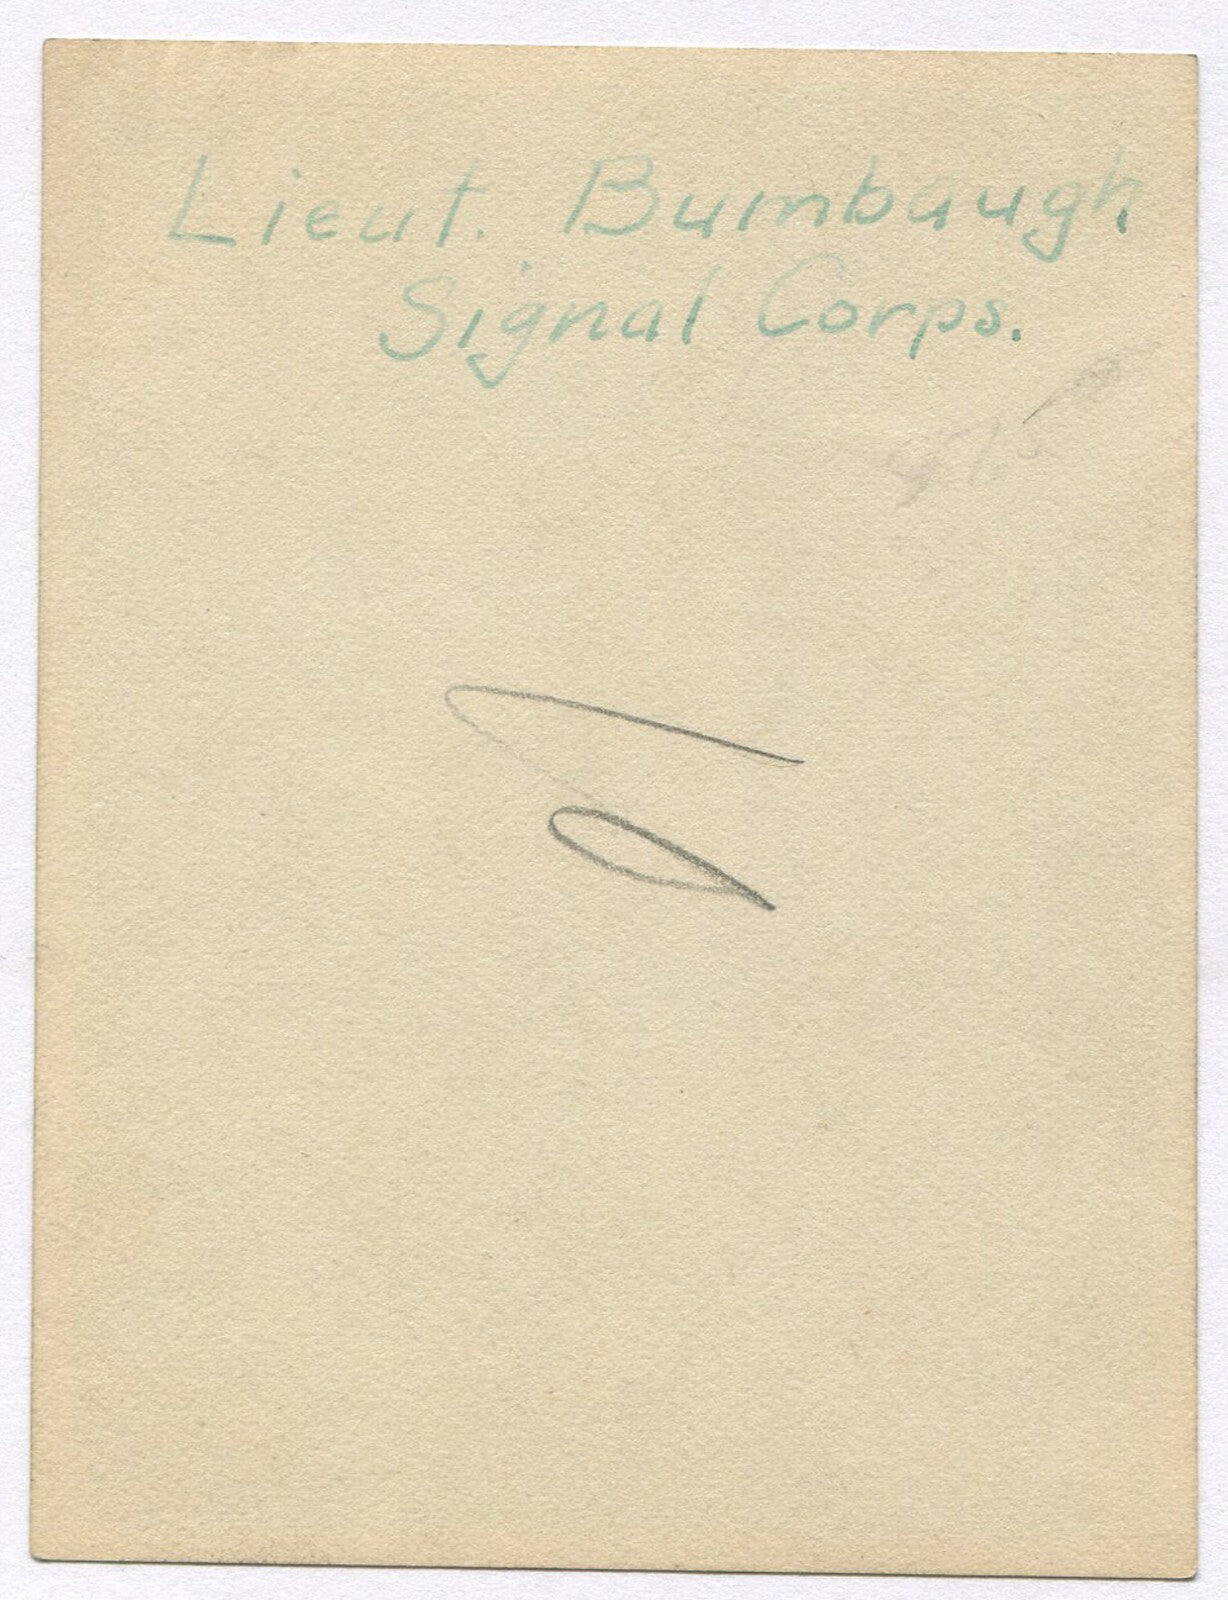 Lieut. Bumbaugh.
Signal Corps.